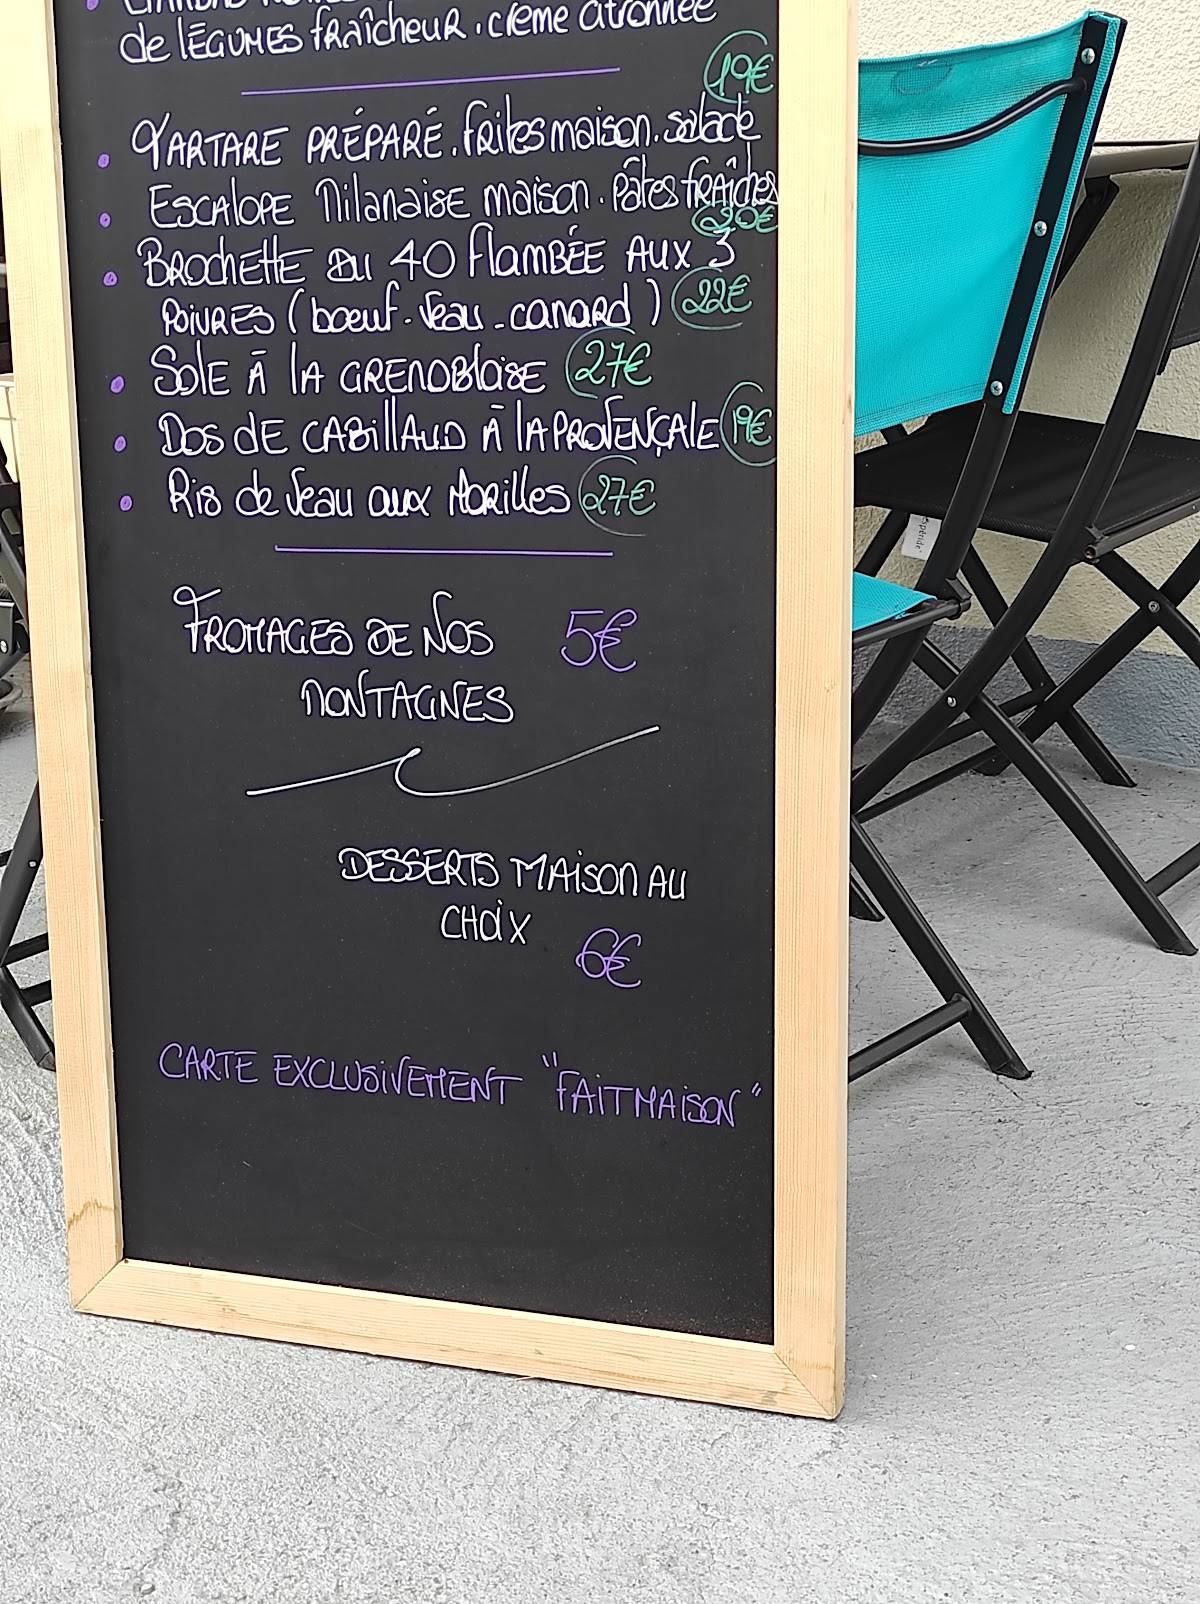 de LÉGUMES fraîcheur. crème citronnée
19€
• TARTARE PRÉPARÉ. frites maison. salade
• ESCALOPE Milanaise maison. Pâtes fraîches
20€
• BROCHETTE DU 40 flAMBÉE AUX 3
POIVRES (boeuf - Veau - canard) 22€
• SOLE À LA GRENOBLOISE 27€
• DOS dE CABILLAUD À LA PROVENÇALE 19€
• Ris de Veau aux Morilles 27€
FROMAGES DE NOS 5€
MONTAGNES
DESSERTS MAISON AU
CHOIX
6€
CARTE EXCLUSIVEMENT "FAIT MAISON"